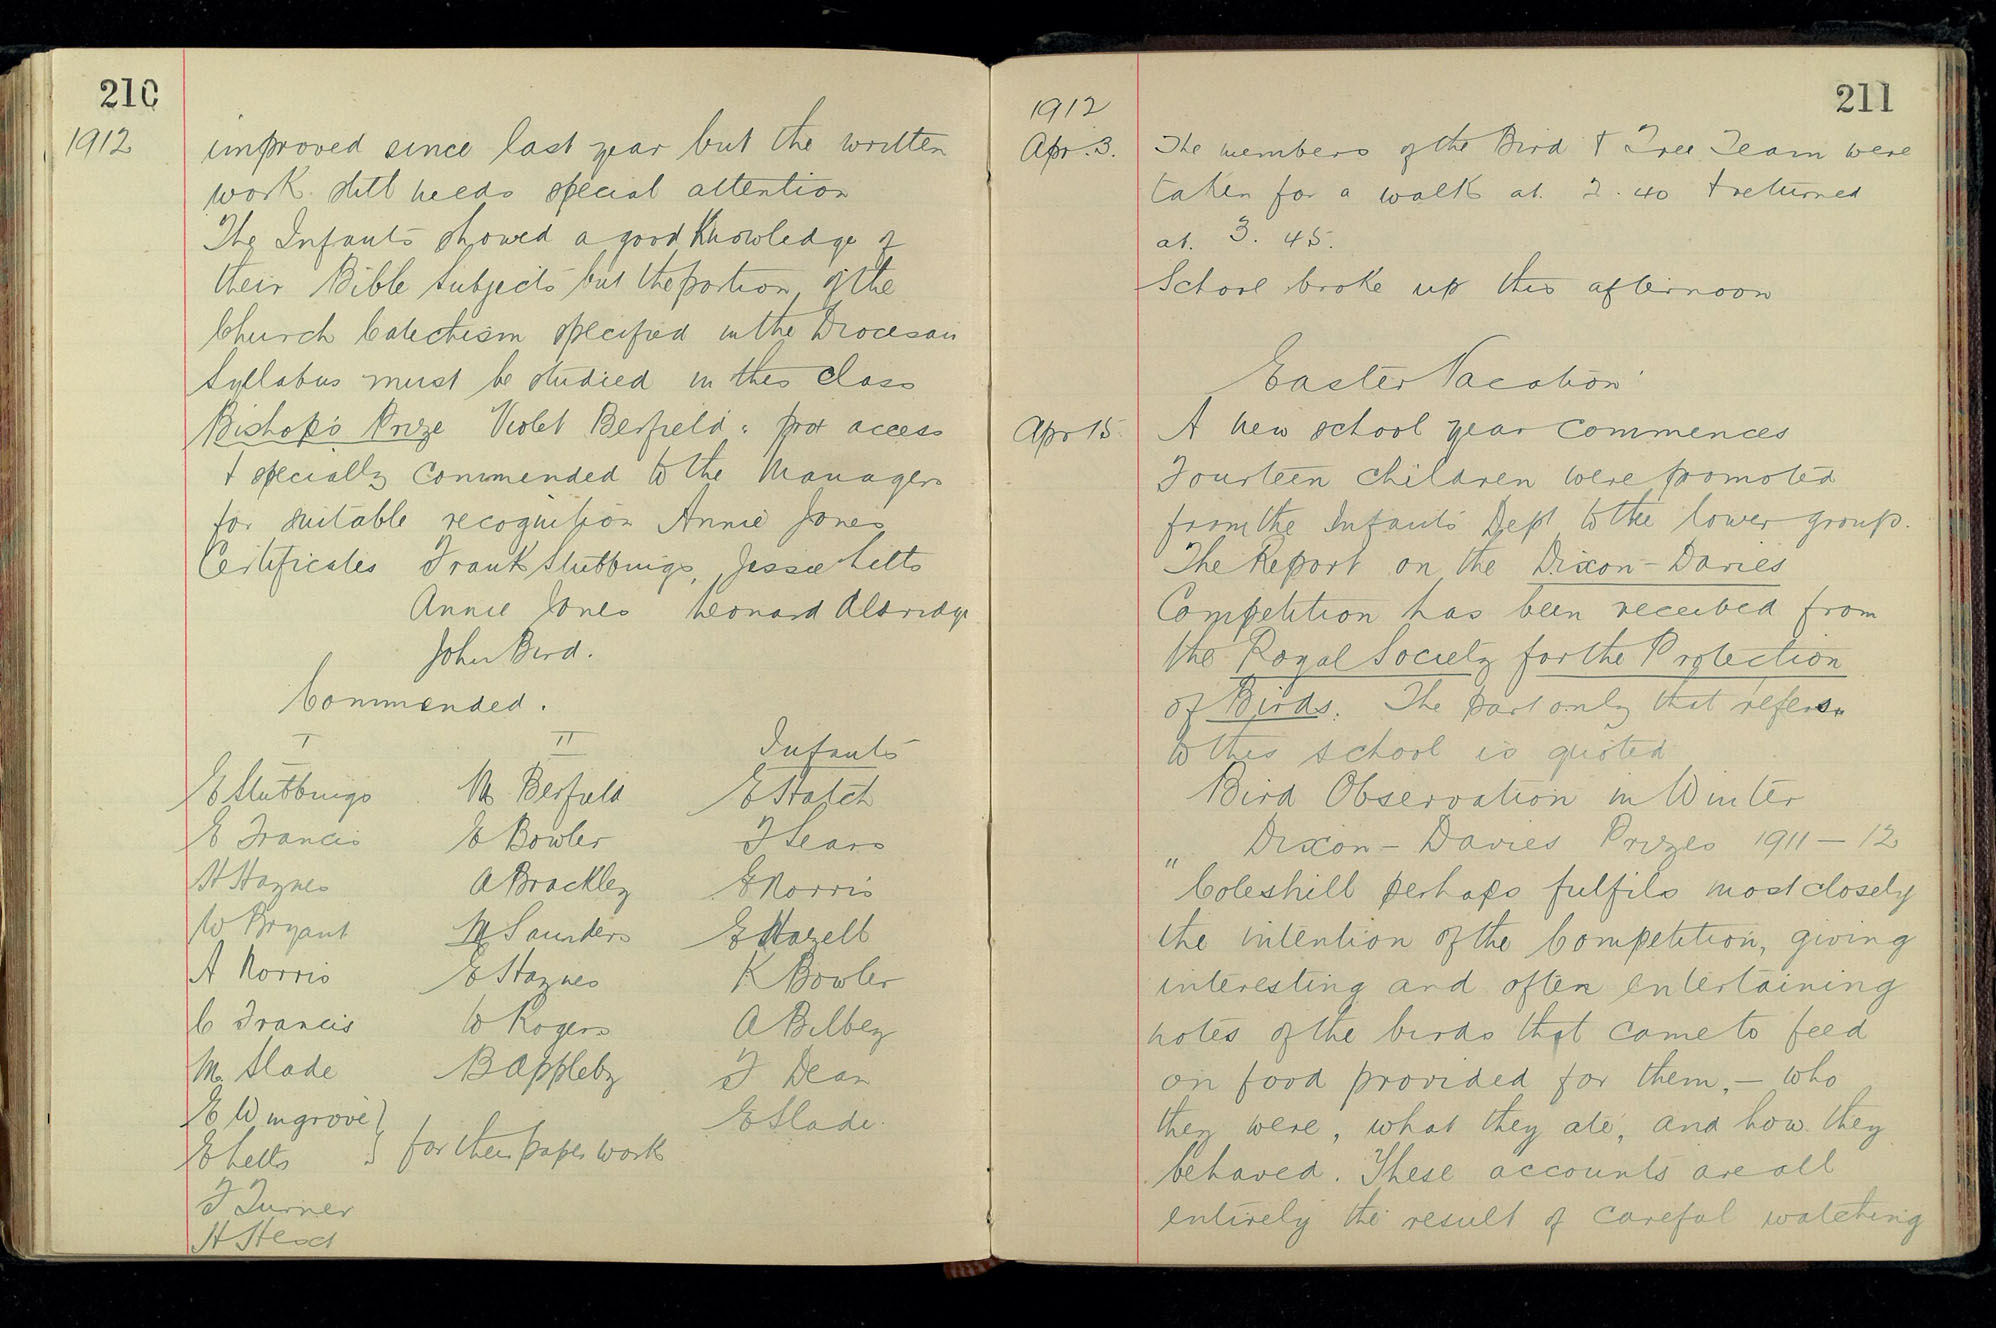 210
1912
improved since last year but the written
work still needs special attention
The Infants showed a good Knowledge of
their Bible Subjects but the portion of the
Church Catechism specified in the Diocesan
Syllabus must be studied in this class
Bishop's Prize Violet Berfield: prox access
& specially commended to the Managers
for suitable recognition Annie Jones
Certificates Frank Stubbings, Jessie Letts
Annie Jones Leonard Aldridge
John Bird.
Commended.
I II Infants
E Stubbings M Berfield E Hatch
E Francis E Bowler F Sears
H Haynes A Brackley E Norris
W Bryant M Saunders E Hazell
A Norris E Haynes K Bowler
C Francis W Rogers A Bilbey
M. Slade B Appleby F Dean
E Wingrove } E Slade.
E Letts } for their paper work
F Turner
H Head
211
1912
Apr. 3. The members of the Bird & Tree Team were
taken for a walk at 2.40 & returned
at 3.45.
School broke up this afternoon
Easter Vacation
Apr 15 A new school year commences
Fourteen children were promoted
from the Infants Dept to the lower group.
The Report on the Dixon-Davies
Competition has been received from
the Royal Society for the Protection
of Birds. The part only that refers
to this school is quoted
Bird Observation in Winter
Dixon - Davies Prizes 1911 - 12
"Coleshill perhaps fulfils most closely
the intention of the Competition, giving
interesting and often entertaining
notes of the birds that came to feed
on food provided for them, - who
they were, what they ate, and how they
behaved. These accounts are all
entirely the result of careful watching